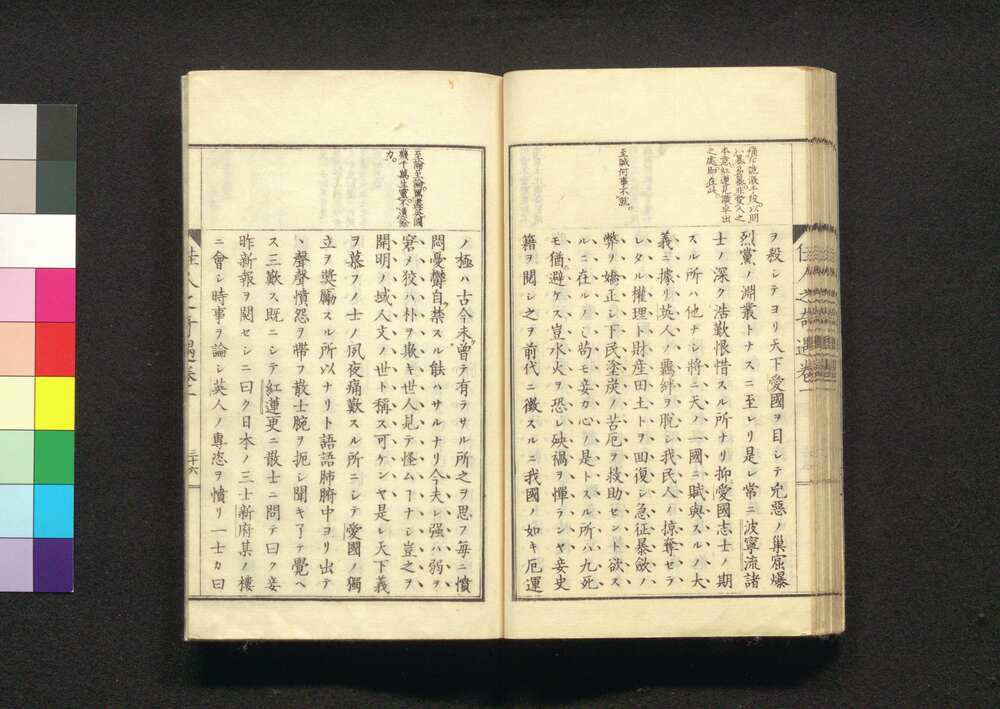 佳人之奇遇卷一
至誠何事不就
ヲ殺シテヨリ天下愛國ヲ目シテ兇惡ノ巢窟爆
烈黨ノ淵叢トナスニ至レリ是レ常ニ波寧流諸
士ノ深ク浩歎恨惜スル所ナリ抑愛國志士ノ期
スル所ハ他ナシ將ニ天ノ一國ニ賦與スルノ大
義ニ據リ英人ノ羈絆ヲ脫シ我民人ノ掠奪セラ
レタル權理ト財産田土トヲ回復シ急征暴斂ノ
弊ヲ矯正シ下民塗炭ノ苦厄ヲ救助セント欲ス
ルニ在ルノミ苟モ妾カ心ノ是トスル所ハ九死
モ猶避ケス豈水火ヲ恐レ殃禍ヲ憚ランヤ妾史
籍ヲ閱シ之ヲ前代ニ徵スルニ我國ノ如キ厄運
幾千萬生靈不濆餘
力
ノ極ハ古今未曾テ有ラサル所之ヲ思フ每ニ憤
悶憂鬱自ラ禁スル能ハサルナリ今夫レ强ハ弱ヲ
窘メ狡ハ朴ヲ欺キ世人見テ怪ムーナシ豈之ヲ
開明ノ域人文ノ世ト稱ス可ケンヤ是レ天下義
ヲ慕フノ士ノ夙夜痛歎スル所ニシテ愛國ノ獨
立ヲ奬勵スル所以ナリト語語肺腑中ヨリ出テ
ヽ聲聲憤怨ヲ帶フ散士腕ヲ扼シ聞キ了テ覺ヘ
ス三歎ス既ニシテ紅蓮更ニ散士ニ問テ曰ク妾
昨新報ヲ閱セシニ曰ク日本ノ三士新府某ノ樓
ニ會シ時事ヲ論シ英人ノ專恣ヲ憤リ一士カ曰
佳人之奇遇卷一
三十六